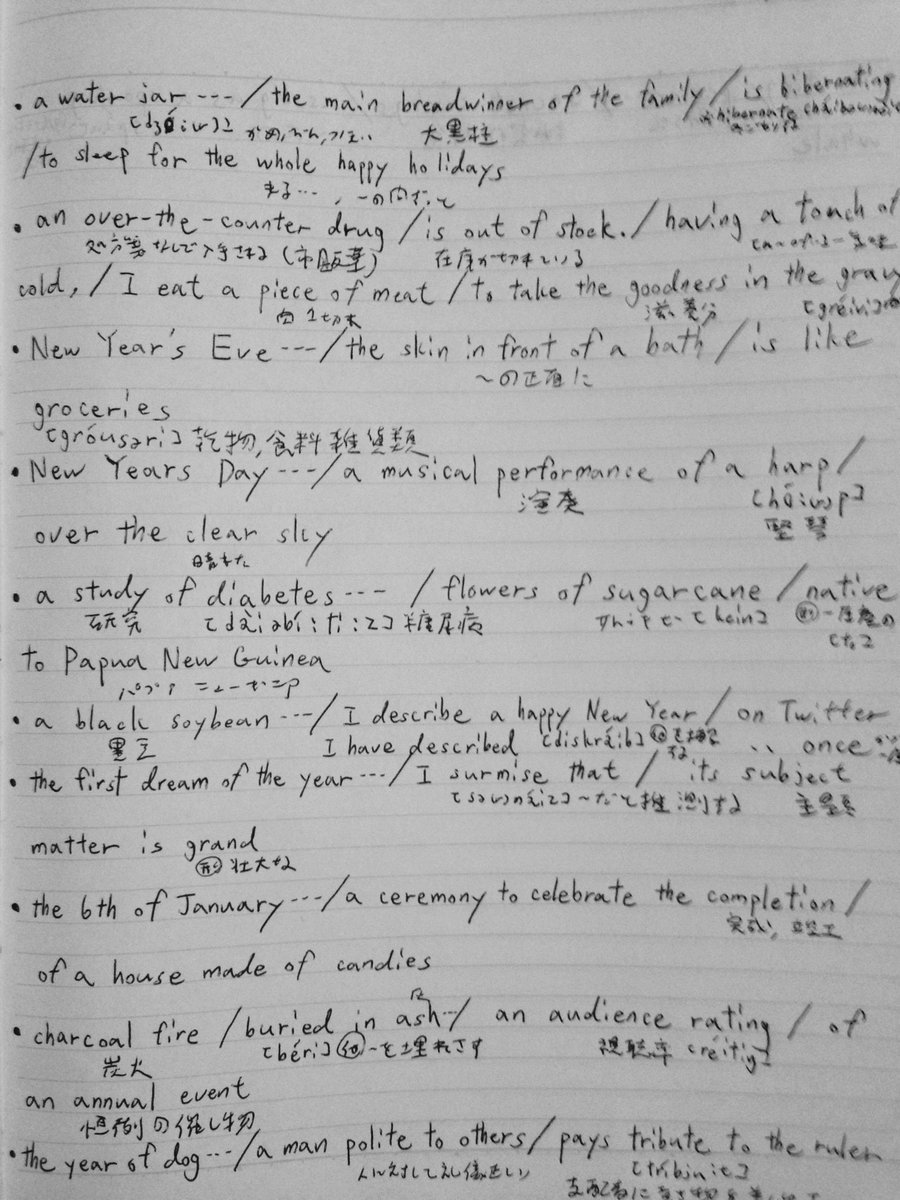 • a water jar --- / the main breadwinner of the family / is hibernating
大黒柱 hibernate
/to sleep for the whole happy holidays
• an over-the-counter drug / is out of stock. / having a touch of
処方箋なしで入手される (市販薬) 在庫が切れている
cold, / I eat a piece of meat / to take the goodness in the gravy
肉1切れ 滋養分
• New Year's Eve --- / the skin in front of a bath / is like
～の正面に
groceries
[gróusəri] 乾物, 食料雑貨類
• New Years Day --- / a musical performance of a harp /
演奏 竪琴
over the clear sky
晴れた
• a study of diabetes --- / flowers of sugarcane / native
研究 糖尿病
to Papua New Guinea
パプア ニューギニア
• a black soybean --- / I describe a happy New Year / on Twitter
黒豆 I have described [diskráib] once
• the first dream of the year --- / I surmise that / its subject
～だと推測する 主題
matter is grand
形 壮大な
• the 6th of January --- / a ceremony to celebrate the completion /
完成, 竣工
of a house made of candies
• charcoal fire / buried in ash -- / an audience rating / of
炭火 [béri] 他 ～を埋れさす 視聴率 [réitiŋ]
an annual event
恒例の催し物
• the year of dog --- / a man polite to others / pays tribute to the ruler
人に対して礼儀正しい